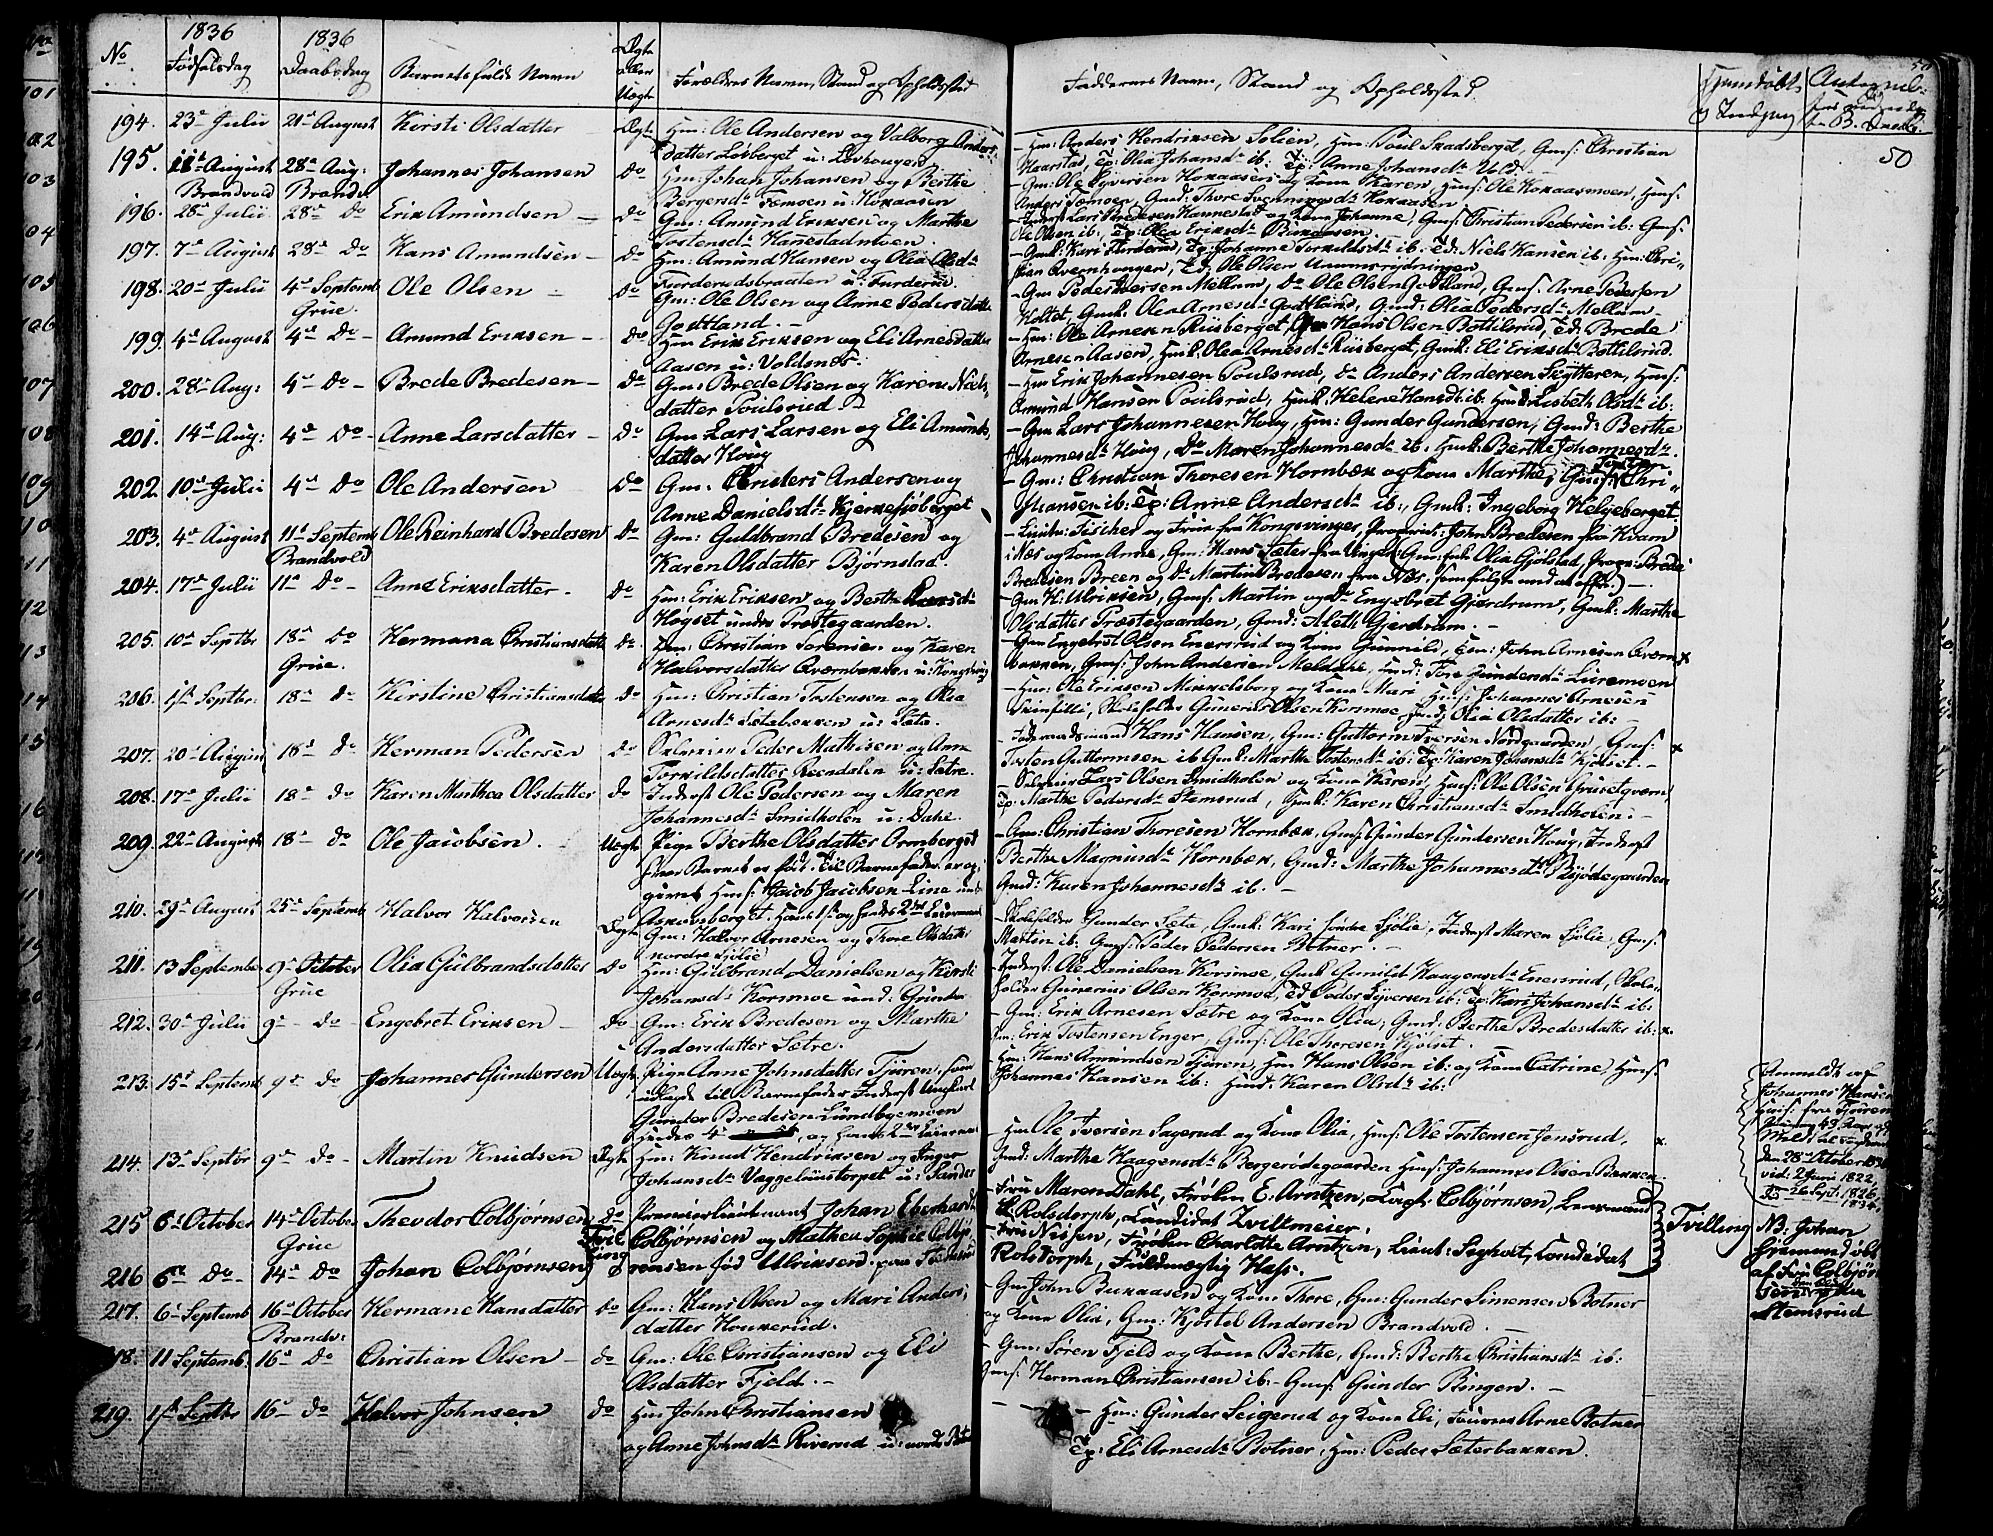 No 1836 Fødselsdag 1836 Daabsdag Barnets fulde Navn Ægte eller Uægte Forældres Navn, Stand og Opholdssted Faddernes Navn, Stand og Opholdssted
50
194. 23de Julii 21de August Kirsti Olsdatter Ægte Hm: Ole Andersen og Valborg Anders-
datter Løsberget u:
Hm: Anders Hendriksen Solien, Hm: Poul Skadsberget, Gmsf: Christian
Haarstad, Tp: Olia Johansdr ib: Tp: Anne Johansdr Vold.
195. 11te August 28de Aug: Johannes Johansen Do Hm: Johan Johansen og Berthe
Brandvold Brandv
Bergersdr Tæmoen u: Kokaasen
Gm: Ole Syversen Kokaasen og Kone Karen, Hmsf: Ole Kokaasmoen, Hmsf:
Anders Tæmoen, Gmd: Thore Svensrud Kokaasen
196. 28de Julii 28de Do Erik Amundsen Do Gm: Amund Eriksen og Marthe
Tostensdr Hanestadmoen.
Inderst Lars Bredesen Hannestad og Kone Johanne, Gmsf: Christian Pedersen ib: Gmsf:
Ole Olsen ib, Tp: Olia Eriksdr Bukaasen
197. 7de August 28de Do Hans Amundsen Do Hm: Amund Hansen og Olia Olsdr
Furderudsbraaten u: Furderud
Gmk: Kari Furderud, Tp: Johanne Torkildsdr ib: Td: Niels Hansen ib: Hm: Chri-
stian Qvernhaugen, Td: Ole Olsen
198. 20de Julii 4de Septemb Ole Olsen Do Gm: Ole Olsen og Anne Pedersdatter
Grue.
Godtland.
Gm Peder Iversen Mellum, Do Ole Olsen Godtland, Gmsf: Arne Pedersen
Holtet, Gmk: Olea Arnesdr Godtlund, Gmd: Olia Pedersdr Mellum
199. 4de August 4de Do Amund Eriksen Do Hm Erik Eriksen og Eli Arnesdatter
Aasen u: Voldsnes
Hm: Ole Arnesen Riisberget, Gm Hans Olsen Bottilsrud, Td: Brede
Arnesen Aasen, Hmk: Olea Arnesdr Riisberget, Gmk: Eli Eriksdr Bottilsrud.
200. 28de Aug: 4de Do Brede Bredesen Do Gm: Brede Olsen og Karen Niels-
datter Poulsrud
Hm Erik Johannesen Poulsrud, Do Anders Andersen Skytteren, Hmsf:
Amund Hansen Poulsrud, Hmk: Helene Hansdr ib: Hmd: Lisbeth Olsdr ib:
201. 14de Aug: 4de Do Anne Larsdatter Do Gm Lars Larsen og Eli Amunds-
datter Houg
Gm Lars Johannesen Houg, Hm: Gunder Gundersen, Gmd: Berthe
Johannesdr Houg, Do Maren Johannesdr ib, Hmk: Berthe Johannesdr.
202. 10de Julii 4de Do Ole Andersen Do Gm. Anders Andersen og
Anne Danielsdr Kjerkesjøberget
Gm: Christian Thoresen Hornbæk og Kone Marthe, Gmsf: Chri-
stiansen ib: Tp: Anne Andersdr ib:, Gmk: Ingeborg Helgeberget
203. 4de August 11te Septemb Ole Reinhard Bredesen Do Gm: Guldbrand Bredesen og
Brandvold
Karen Olsdatter Bjørnstad.
Lieut: Fischer og Frue fra Kongsvinger, Proprietr: John Bredesen fra Hvam
i Næs og Kone Anne, Gm: Hans Sæter fra Vinger, Gm: fuk Olia Gjølstad, Prop: Brede
Bredesen Breen og Do Martin Bredesen fra Næs
204. 17de Julii 11te Do Anne Eriksdatter Do Hm: Erik Eriksen og Berthe Larsdr
Hogset under Præstegaarden.
Gm H: Ulriksen, Gmsf: Martin og Do Engebret Gjerdrum, Gmk: Marthe
Olsdatter Præstegaarden, Gmd: Aleth Gjerdrum.
205. 10de Septbr 18de Do Hermana Christiansdatter Do Hm: Christian Sørensen og Karen
Grue.
Halvorsdatter Qværnbakken u: Kongshoug
Gm Engebret Olsen Enersrud og Kone Gunnild, Hm: John Arnesen Qværn-
bakken, Gmsf: John Andersen Meldahl, Hmd: Tore Gundersdr Luremoen
206. 1ste Septbr: 18de Do Kirstine Christiansdatter Do Hm: Christian Tostensen og Olia
Arnesdr Sætebakken u: Sæta.
Hm: Ole Eriksen Mikkelsborg og Kone Mari Hmsf: Johannes Arnesen
Skinfille, Skoleholder Gunerius Olsen Kirsmoe, Hmd: Olia Olsdatter ib:
207. 20de August 18de Do Herman Pedersen Do Selveier Peder Mathisen og Anne
Torkildsdatter Reendalen u: Sætre.
Hans Hansen, Gm: Guttorm Iversen Nordgaarden, Gmsf:
Tosten Guttormsen ib Gmk: Marthe Tostensdr ib: Tp: Karen Johansdr Kjølset.
208. 17de Julii 18de Do Karen Marthea Olsdatter Do Inderst Ole Pedersen og Maren
Johannesdr Smidholen u: Dahl.
Selveier Lars Olsen Smidholen og Kone Karen, Hmsf: Ole Olsen Gruetqværn,
Tp: Marthe Pedersdr Stemsrud, Gmk: Karen Christiansdr Smidholen.
209. 22de August 18de Do Ole Jacobsen. Uægte Pige Berthe Olsdatter Ornberget
hvor Barnet er født. Til Barnefader er op-
givet Hmsf: Jacob Jacobsen Line under
Gm: Christian Thoresen Hornbæk, Gmsf: Gunder Gundersen Houg, Inderst
Berthe Magnusdr Hornbæk, Gmd: Marthe Johannesdr Byödegaarden
Gmd: Karen Johannesdr ib.
210. 29de August 25de Septemb Halvor Halvorsen Ægte
Gm: Halvor Arnesen og Thore Olsdatter
nordre Sjølie
Skoleholder Gunder Sæta, Gmk: Kari søndre Sjølie, Inderst Maren Sjølie, Gmsf:
Martin ib: Gmsf: Peder Pedersen Botner
211. 13 Septembr 9de October Olia Gulbrandsdatter Do Hm: Gulbrand Danielsen og Kersti
Grue
Johansdr Korsmoe und: Grinder
Inderst: Ole Danielsen Korsmoe, Gmk Gunild Haagensdr Enersrud, Skole-
holder Gunerius Olsen Korsmoe, Td Peder Syversen ib: Tp: Kari Johansdr ib:
212. 30de Julii 9de Do Engebret Eriksen Do Gm: Erik Bredesen og Marthe
Andersdatter Sætre.
Gm: Erik Arnesen Sætre og Kone Olia, Gmd: Berthe Bredesdatter ib:
Gm: Erik Tostensen Enger, Gmsf: Ole Thoresen Kjølset.
213. 15de Septemb 9de Do Johannes Gundersen Uægte Pige Anne Johnsdatter Tjuren, som
udlagde til Barnefader Inderst Ungkarl
Gunder Bredesen Lundbyemoen
Hendes 4de og hans 2den Leiermaal
Hm: Hans Amundsen Tjuren, Hm Hans Olsen ib: og Kone Catrine, Hmsf:
Johannes Hansen ib: Hmd: Karen Olsdr ib:
Anmeldt af
Johannes Hansen
Hmsf: fra Tjuren
den 28de October 1836
vid: 2 Juni 1822,
Do 26 Sept: 1826
1834
214. 13de Septbr 9de Do Martin Knudsen Ægte Hm: Knud Hendriksen og Inger
Johansdr Vaggelunstorpet u: Sander
Hm Ole Iversen Sagerud og Kone Olia, Hmsf: Ole Tostensen Jensrud,
Gmd: Marthe Haagensdr Bergerødegaarden Hmsf: Johannes Olsen Bakken
215 6te October 14de October Theodor Colbjørnsen Do Premierlieutenant Johan Eberhardt
Grue Tvil ling Colbjørnsen og Mathea Sophie Colbjø-
rensen fød Ulriksen paa Stemsrud
Fru Maren Dahl, Frøken E. Arntzen, Lovgt: Colbjørnsen, Lensmand
H. Rolsdorph, Candidat Zviltmeier.
216 6te Do 14de Do Johan Colbjørnsen
Fru Nissen, Frøken Charlotte Arntzen, Lieut: Seghost, Candidat
Rolsdorph, Fuldmægtig Hass.
Tvilling NB. Johan
af Fru Colbjørn-
sen
Stemsrud
217. 6te Septemb 16de October Hermane Hansdatter Do Gm: Hans Olsen og Mari Anders-
Brandv:
datter Honkerud.
Gm John Bukaasen og Kone Thore, Gm: Gunder Simensen Botner
og Kone Olia, Gm: Kjøstel Andersen Brandvold.
218. 11 Septemb. 16de Do Christian Olsen Do Gm: Ole Christiansen og Eli
Olsdatter Fjeld.
Gm: Søren Fjeld og Kone Berthe, Gmd: Berthe Christiansdr ib:
Gmsf: Herman Christiansen ib: Gmsf: Gunder Bingen.
219. 1ste Septbr 16de Do Halvor Johnsen Do Hm John Christiansen
og Anne Johnsdr Riverud u: nordr
Hm: Gunder Seigerud og Kone Eli, Arne Botner
Tp: Eli Arnesdr Botner, Hm: Peder Sæterbakken.